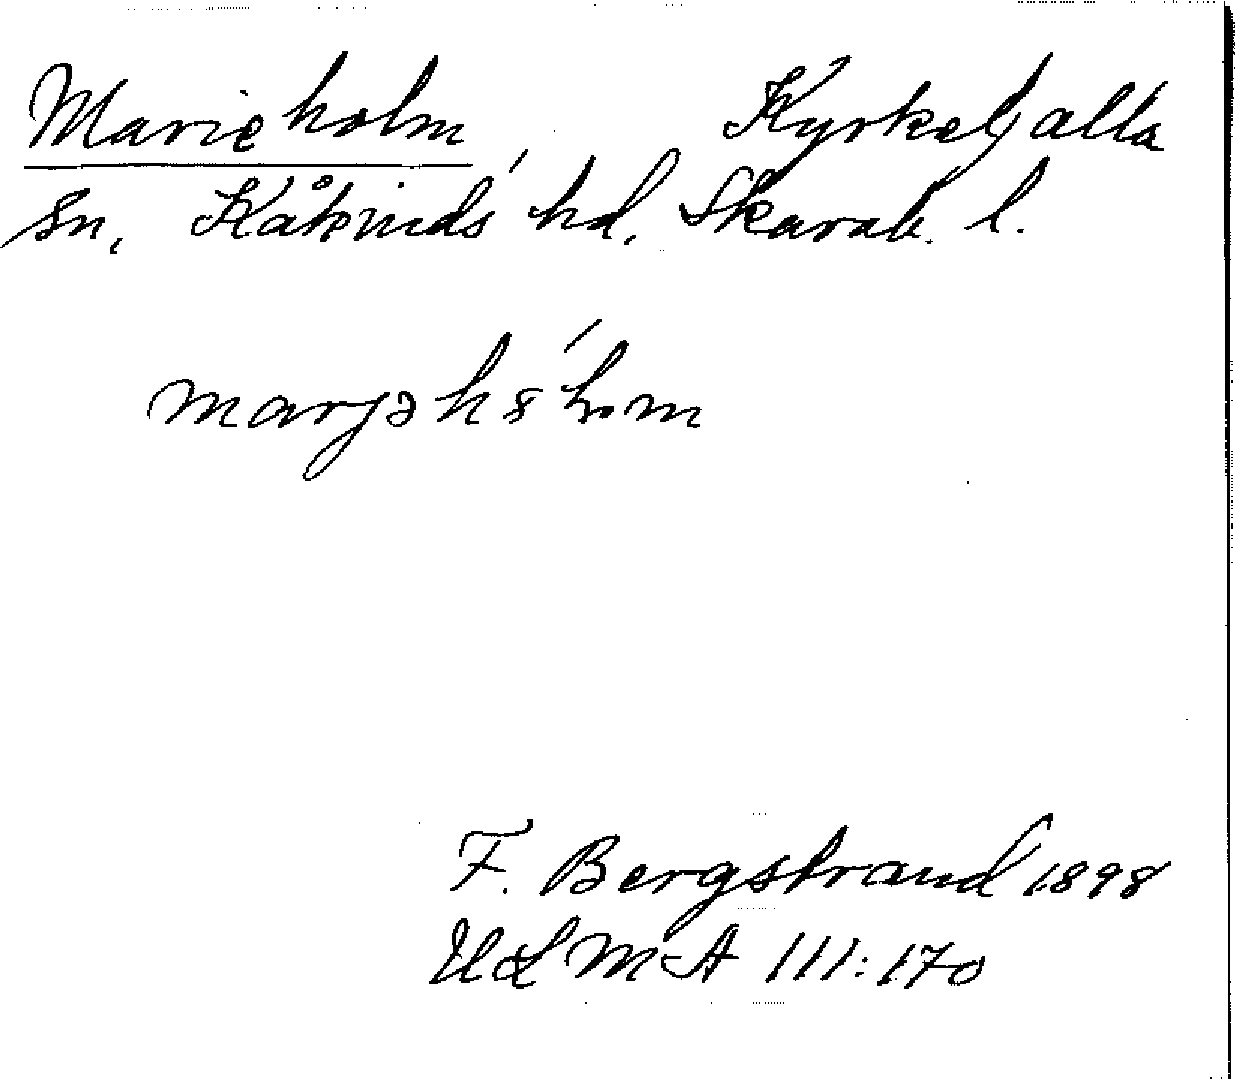 Marieholm, Kyrkefalla
sn, Kåkinds hd, Skarab. l.
F. Bergstrand 1898
ULMA 111:170